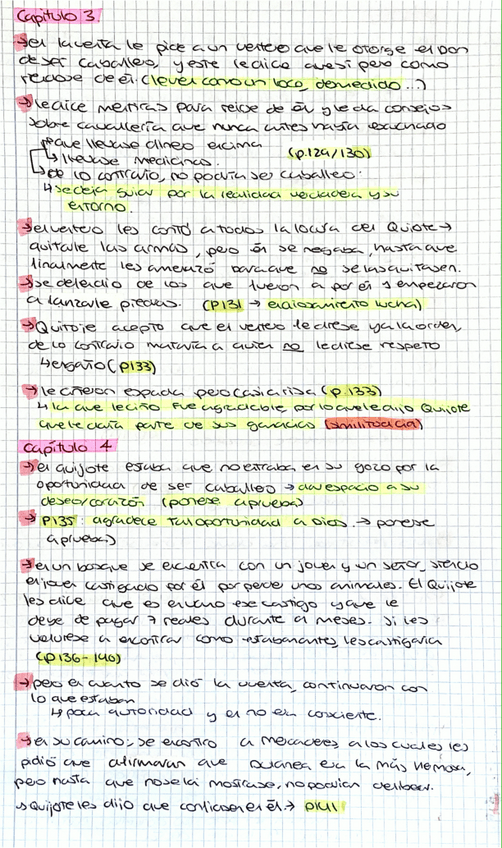 Capítulo 3
→ en la venta le pide a un ventero que le otorge el don
de ser caballero, y este le dice que sí pero como
reirdose de él. (lever como un loco, demediado...)
→ le dice mentiras para reirse de él y le da consejos
sobre caballería que nunca antes había escuchado
↱ que llevase dinero encima
↳ llevase medicinas. (p.129/130)
→ de lo contrario, no podría ser caballero.
↳ se deja guiar por la realidad verdadera y su
entorno.
→ el ventero les contó a todos la locura del Quijote →
quitarle las armas, pero él se negaba, hasta que
finalmente les amenazó para que no se las quitasen.
→ se defendió de los que fueron a por él y empezaron
a lanzarle piedras. (P131 → endiosamiento lucha)
→ Quijote acepto que el ventero le diese ya la orden,
de lo contrario mataría a quien no le diese respeto
↳ engaño (p133)
→ le ciñeron espada pero casi a risa (p.133)
↳ la que le ciño fue agradable por lo que le dijo Quijote
que le daría parte de sus ganacias (similitud a cial)
Capítulo 4
→ el quijote estaba que no entraba en su gozo por la
oportunidad de ser caballero → da espacio a su
deseo/corazón (ponerse a prueba)
→ P135: agradece tal oportunidad a Dios. → ponerse
a prueba)
→ en un bosque se encuentra con un joven y un señor, siendo
el joven castigado por él por perder unos animales. El Quijote
les dice que es erroneo ese castigo y que le
debe de pagar 7 reales durante 9 meses. Si les
volviese a encontrar como estaban antes, les castigaría
(p136-140)
→ pero en cuanto se dió la vuelta, continuaron con
lo que estaban
↳ poca autoridad y él no era consciente.
→ en su camino; se encontro a mercaderes a los cuales les
pidió que afirmaran que Dulcinea era la más hermosa,
pero hasta que no se la mostrase, no podían deliberar.
↳ Quijote les dijo que confiasen en él. → p141